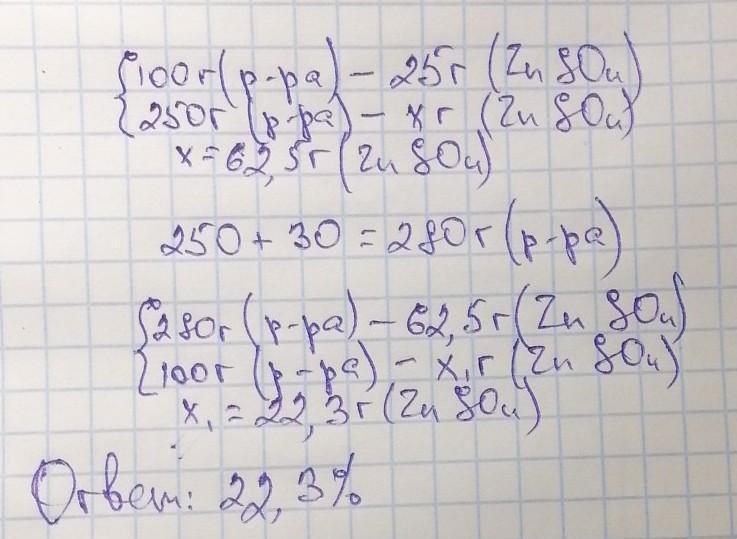 {100г (р-ра) - 25г (Zn SO₄)
{250г (р-ра) - x г (Zn SO₄)
x = 62,5г (Zn SO₄)
250 + 30 = 280г (р-ра)
{280г (р-ра) - 62,5г (Zn SO₄)
{100г (р-ра) - x₁г (Zn SO₄)
x₁ = 22,3г (Zn SO₄)
Ответ: 22,3%